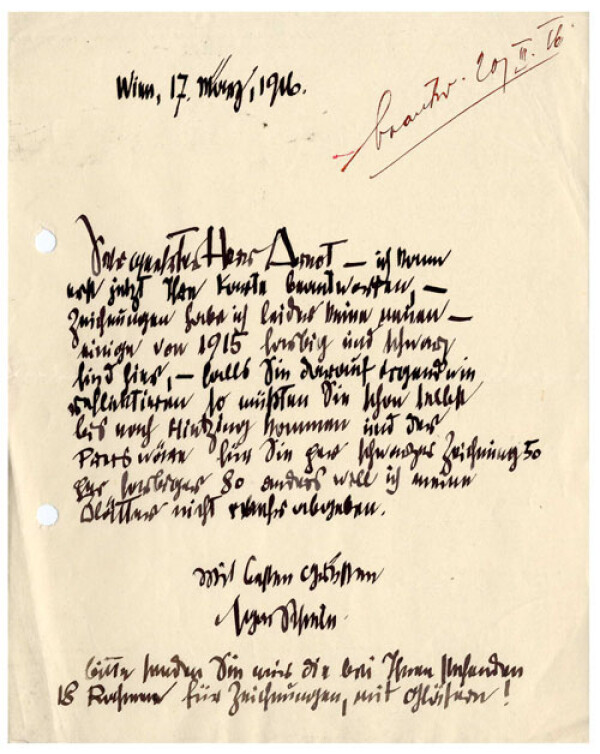 Wien, 17. März, 1916.
beantw. 20/III. 16
Sehr geehrter Herr Arnot – ich kann
erst jetzt Ihre Karte beantworten, –
Zeichnungen habe ich leider keine neuen –
einige von 1915 farbig und schwarz
sind hier, – falls Sie darauf irgendwie
reflektieren so müßten Sie schon selbst
bis nach Hietzing kommen und der
Preis wäre für Sie per schwarzer Zeichnung 50
per farbiger 80 anders will ich meine
Blätter nicht mehr abgeben.
Mit besten Grüssen
Egon Schiele.
bitte senden Sie mir die bei Ihnen stehenden
18 Rahmen für Zeichnungen, mit Gläsern!